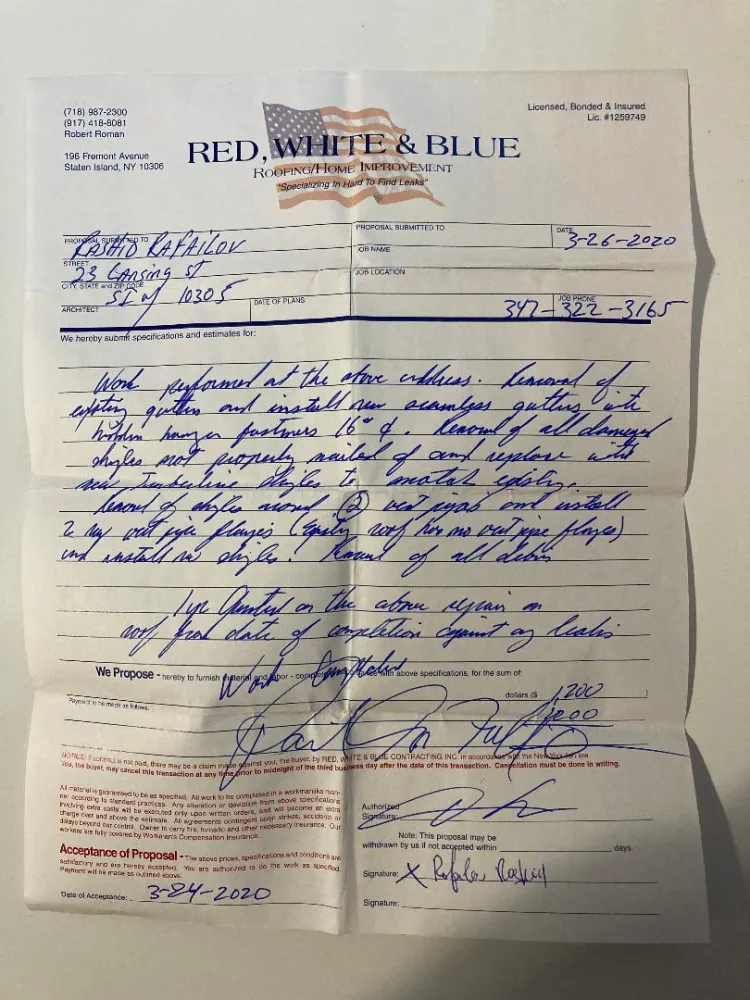 (718) 987-2300
(917) 418-8081
Robert Roman
196 Fremont Avenue
Staten Island, NY 10306
Licensed, Bonded & Insured
Lic. #1259749
RED, WHITE & BLUE
ROOFING/HOME IMPROVEMENT
"Specializing In Hard To Find Leaks"
PROPOSAL SUBMITTED TO
RASHID RAFAILOV
PROPOSAL SUBMITTED TO
DATE
3-26-2020
STREET
23 Cansing ST
JOB NAME
CITY, STATE and ZIP CODE
SI NY 10305
JOB LOCATION
ARCHITECT
DATE OF PLANS
JOB PHONE
347-322-3165
We hereby submit specifications and estimates for:
Work performed at the above address. Removal of
existing gutters and install new seamless gutters with
hidden hanger fastners 16" Removal of all damaged
shigles not properly nailed and replace with
new Timberline shigles to match existing.
Removal of shigles around (2) vent pipes and install
2 new vent pipe flanges (Existing roof has no vent pipe flanges)
and install new shigles. Removal of all debris
1 yr on the above repair on
roof from date of completion against any leaks
We Propose - hereby to furnish material and labor - complete in accordance with above specifications, for the sum of:
Work Completed
dollars ($ 1200
1200
Payment to be made as follows:
Paid In Full
NOTICE: If contract is not paid, there may be a claim made against you, the buyer, by RED, WHITE & BLUE CONTRACTING INC. in accordance with the New York law.
You, the buyer, may cancel this transaction at any time prior to midnight of the third business day after the date of this transaction. Cancellation must be done in writing.
All material is guaranteed to be as specified. All work to be completed in a workmanlike man-
ner according to standard practices. Any alteration or deviation from above specifications
involving extra costs will be executed only upon written orders, and will become an extra
charge over and above the estimate. All agreements contingent upon strikes, accidents or
delays beyond our control. Owner to carry fire, tornado and other necessary insurance. Our
workers are fully covered by Workman's Compensation Insurance.
Authorized
Signature:
Note: This proposal may be
withdrawn by us if not accepted within days.
Acceptance of Proposal - The above prices, specifications and conditions are
satisfactory and are hereby accepted. You are authorized to do the work as specified.
Payment will be made as outlined above.
Signature: X Rafailov Rashid
Date of Acceptance: 3-24-2020
Signature: